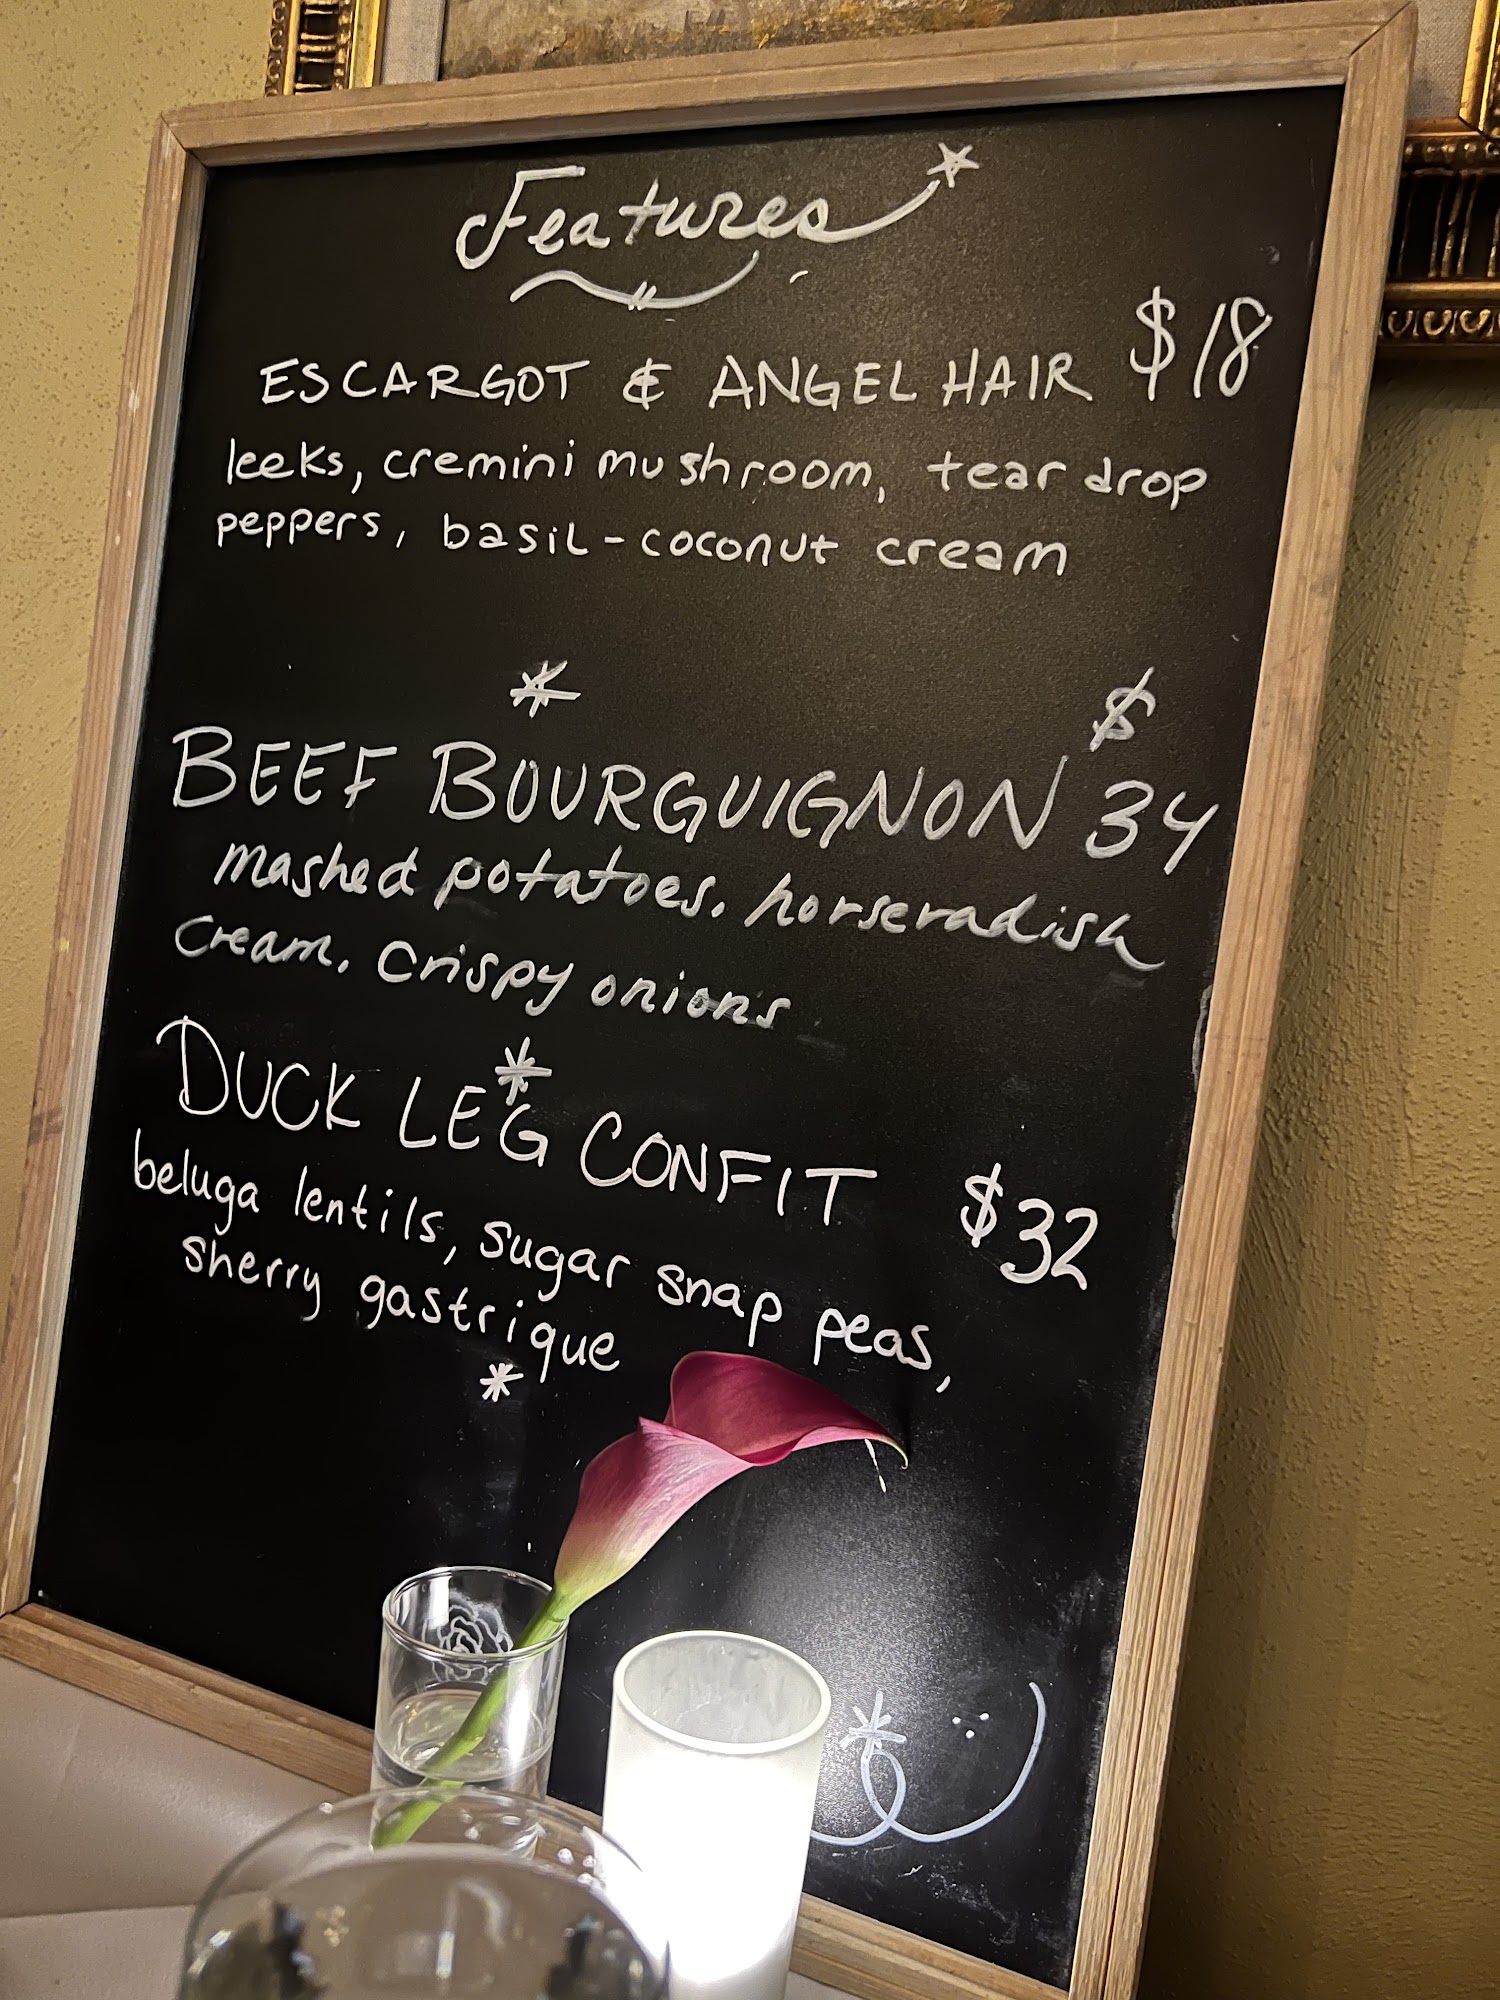 Features
ESCARGOT & ANGEL HAIR $18
leeks, cremini mushroom, tear drop
peppers, basil-coconut cream
*
BEEF BOURGUIGNON $34
mashed potatoes. horseradish
cream. crispy onions
*
DUCK LEG CONFIT $32
beluga lentils, sugar snap peas,
sherry gastrique
*